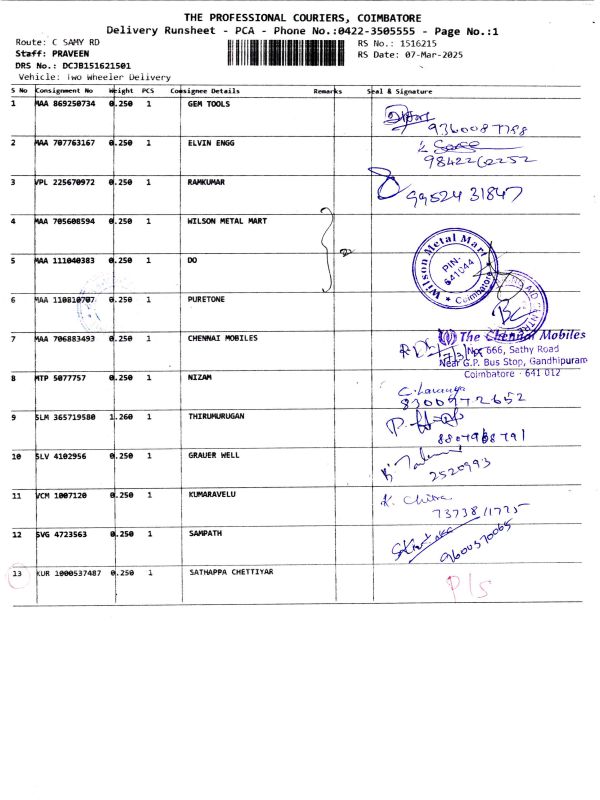 THE PROFESSIONAL COURIERS, COIMBATORE
Delivery Runsheet - PCA - Phone No.:0422-3505555 - Page No.:1
Route: C SAMY RD
RS No.: 1516215
Staff: PRAVEEN
RS Date: 07-Mar-2025
DRS No.: DCJB151621501
Vehicle: Two Wheeler Delivery
S No Consignment No Weight PCS Consignee Details Remarks Seal & Signature
1 MAA 869250734 0.250 1 GEM TOOLS
9360087798
2 MAA 707763167 0.250 1 ELVIN ENGG
9842262252
3 VPL 225670972 0.250 1 RAMKUMAR
9952431847
4 MAA 705608594 0.250 1 WILSON METAL MART
Wilson Metal Mart
PIN-
641044
Coimbatore
5 MAA 111040383 0.250 1 DO
6 MAA 110810707 0.250 1 PURETONE
7 MAA 706883493 0.250 1 CHENNAI MOBILES
The Chennai Mobiles
No: 666, Sathy Road
Near G.P. Bus Stop, Gandhipuram
Coimbatore - 641 012
8 MTP 5077757 0.250 1 NIZAM
8300972652
9 SLM 365719580 1.260 1 THIRUMURUGAN
8807968791
10 SLV 4102956 0.250 1 GRAUER WELL
2520993
11 VCM 1007120 0.250 1 KUMARAVELU
K. Chitra
7373811725
12 SVG 4723563 0.250 1 SAMPATH
9600370065
13 KUR 1000537487 0.250 1 SATHAPPA CHETTIYAR
P/S